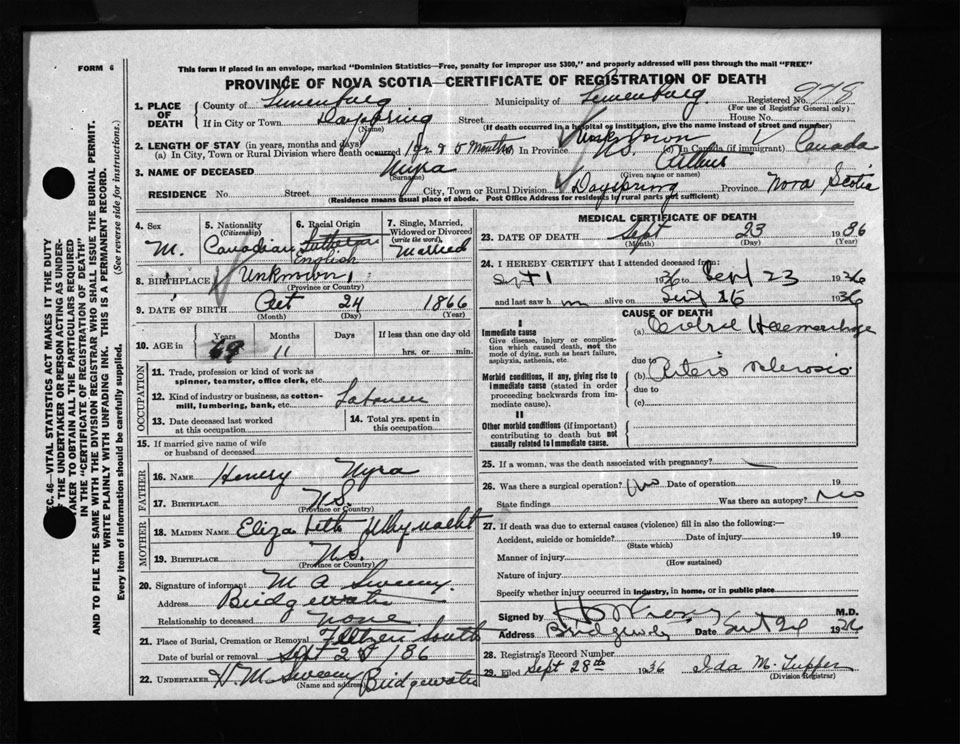 FORM 6
This form if placed in an envelope, marked "Dominion Statistics—Free, penalty for improper use $300," and properly addressed will pass through the mail "FREE"
PROVINCE OF NOVA SCOTIA—CERTIFICATE OF REGISTRATION OF DEATH
1. PLACE OF DEATH
County of Lunenburg Municipality of Lunenburg. Registered No. 948
(For use of Registrar General only)
If in City or Town Dayspring Street House No.
(Name) (If death occurred in a hospital or institution, give the name instead of street and number)
2. LENGTH OF STAY (in years, months and days)
(a) In City, Town or Rural Division where death occurred 1 yr & 5 Months In Province N.S. (c) In Canada (if immigrant) Canada
Unknown
3. NAME OF DECEASED Myra Arthur
(Surname) (Given name or names)
RESIDENCE No. Street City, Town or Rural Division Dayspring Province Nova Scotia
(Residence means usual place of abode. Post Office Address for residents in rural parts not sufficient)
4. Sex M.
5. Nationality (Citizenship) Canadian
6. Racial Origin Lutheran English
7. Single, Married, Widowed or Divorced (write the word) Married
8. BIRTHPLACE Unknown
(Province or Country)
9. DATE OF BIRTH Oct 24 1866
(Month) (Day) (Year)
10. AGE in Years 69 Months 11 Days If less than one day old hrs. or min.
OCCUPATION
11. Trade, profession or kind of work as spinner, teamster, office clerk, etc.
12. Kind of industry or business, as cotton-mill, lumbering, bank, etc. Labourer
13. Date deceased last worked at this occupation
14. Total yrs. spent in this occupation
15. If married give name of wife or husband of deceased
FATHER
16. NAME Henery Myra
17. BIRTHPLACE N.S.
(Province or Country)
MOTHER
18. MAIDEN NAME Eliza Whynacht
19. BIRTHPLACE N.S.
(Province or Country)
20. Signature of informant M A Sweeny.
Address Bridgewater
Relationship to deceased none
21. Place of Burial, Cremation or Removal Feltzen South
Date of burial or removal Sept 25
22. UNDERTAKER Sweeny Bridgewater
(Name and address)
MEDICAL CERTIFICATE OF DEATH
23. DATE OF DEATH Sept 23 1936
(Month) (Day) (Year)
24. I HEREBY CERTIFY that I attended deceased from:
Sept 1 1936 to Sept 23 1936
and last saw h m alive on Sept 16 1936
CAUSE OF DEATH
I
Immediate cause
Give disease, injury or complication which caused death, not the mode of dying, such as heart failure, asphyxia, asthenia, etc.
(a) Cerebral Haemorrhage
due to
Morbid conditions, if any, giving rise to immediate cause (stated in order proceeding backwards from immediate cause).
(b) Arterio sclerosis
due to
(c)
II
Other morbid conditions (if important) contributing to death but not causally related to immediate cause.
25. If a woman, was the death associated with pregnancy?
26. Was there a surgical operation? No Date of operation 19
State findings Was there an autopsy? No
27. If death was due to external causes (violence) fill in also the following:—
Accident, suicide or homicide? Date of injury 19
(State which)
Manner of injury
(How sustained)
Nature of injury
Specify whether injury occurred in industry, in home, or in public place
Signed by M.D.
Address Bridgewater Date Sept 24 1936
28. Registrar's Record Number
29. Filed Sept 28th 1936 Ida M. Tupper
(Division Registrar)
SEC. 46—VITAL STATISTICS ACT MAKES IT THE DUTY
OF THE UNDERTAKER OR PERSON ACTING AS UNDERTAKER TO OBTAIN ALL THE PARTICULARS REQUIRED
IN THE "CERTIFICATE OF REGISTRATION OF DEATH"
AND TO FILE THE SAME WITH THE DIVISION REGISTRAR WHO SHALL ISSUE THE BURIAL PERMIT.
WRITE PLAINLY WITH UNFADING INK. THIS IS A PERMANENT RECORD.
Every item of information should be carefully supplied. (See reverse side for instructions.)